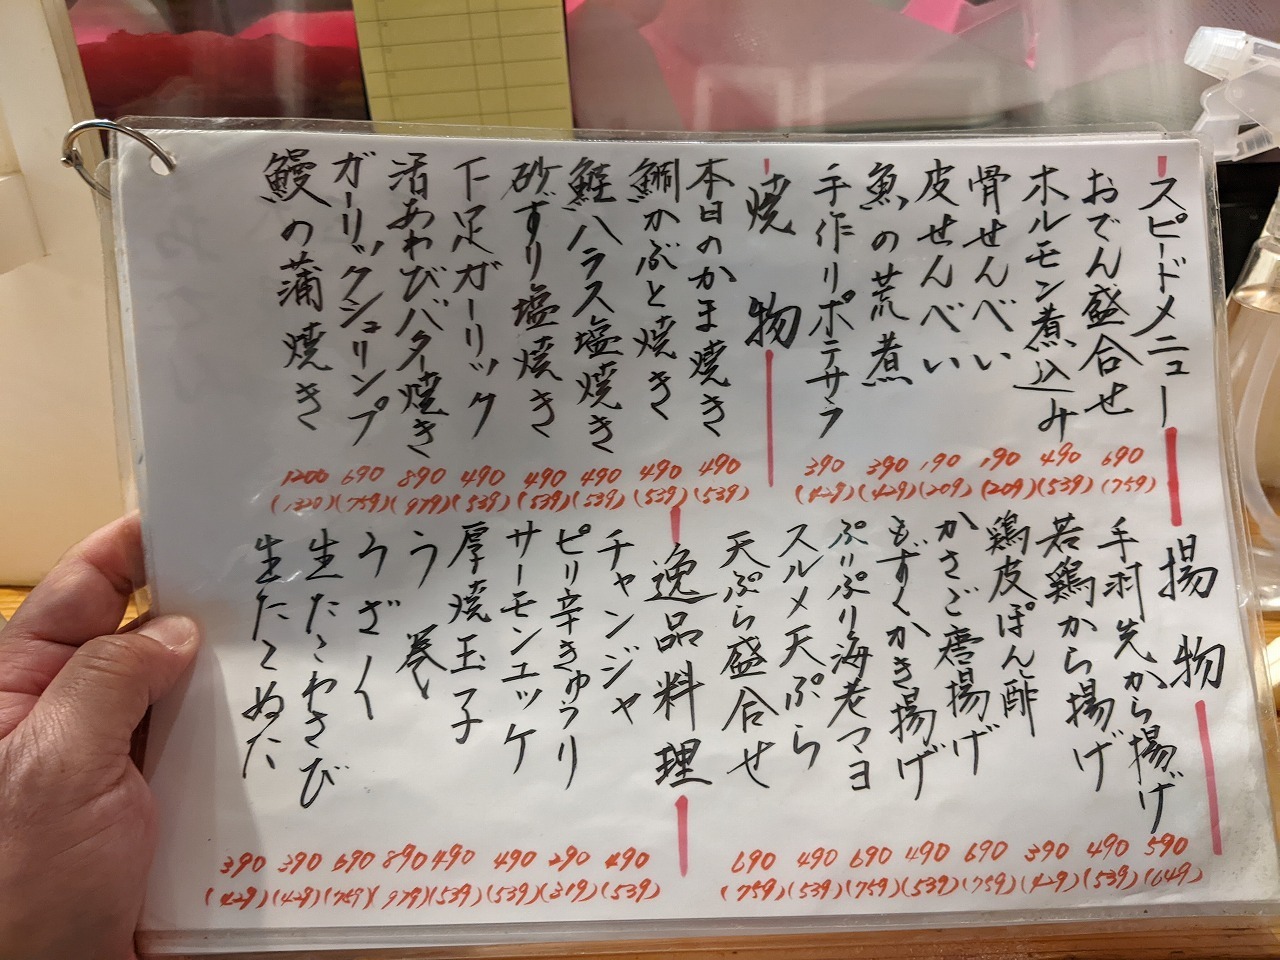 スピードメニュー
おでん盛合せ 690 (759)
ホルモン煮込み 490 (539)
骨せんべい 190 (209)
皮せんべい 190 (209)
魚の荒煮 390 (429)
手作りポテサラ 390 (429)
焼物
本日のかま焼き 490 (539)
鯛かぶと焼き 490 (539)
鮭ハラス塩焼き 490 (539)
砂ずり塩焼き 490 (539)
下足ガーリック 490 (539)
活あわびバター焼き 890 (979)
ガーリックシュリンプ 690 (759)
鰻の蒲焼き 1200 (1320)
揚物
手羽先から揚げ 590 (649)
若鶏から揚げ 490 (539)
鶏皮ぽん酢 390 (429)
かさご唐揚げ 690 (759)
もずくかき揚げ 490 (539)
ぷりぷり海老マヨ 690 (759)
スルメ天ぷら 490 (539)
天ぷら盛合せ 690 (759)
逸品料理
チャンジャ 490 (539)
ピリ辛きゅうり 290 (319)
サーモンユッケ 490 (539)
厚焼玉子 490 (539)
う巻き 890 (979)
うざく 690 (759)
生たこわさび 390 (429)
生たこぬた 390 (429)